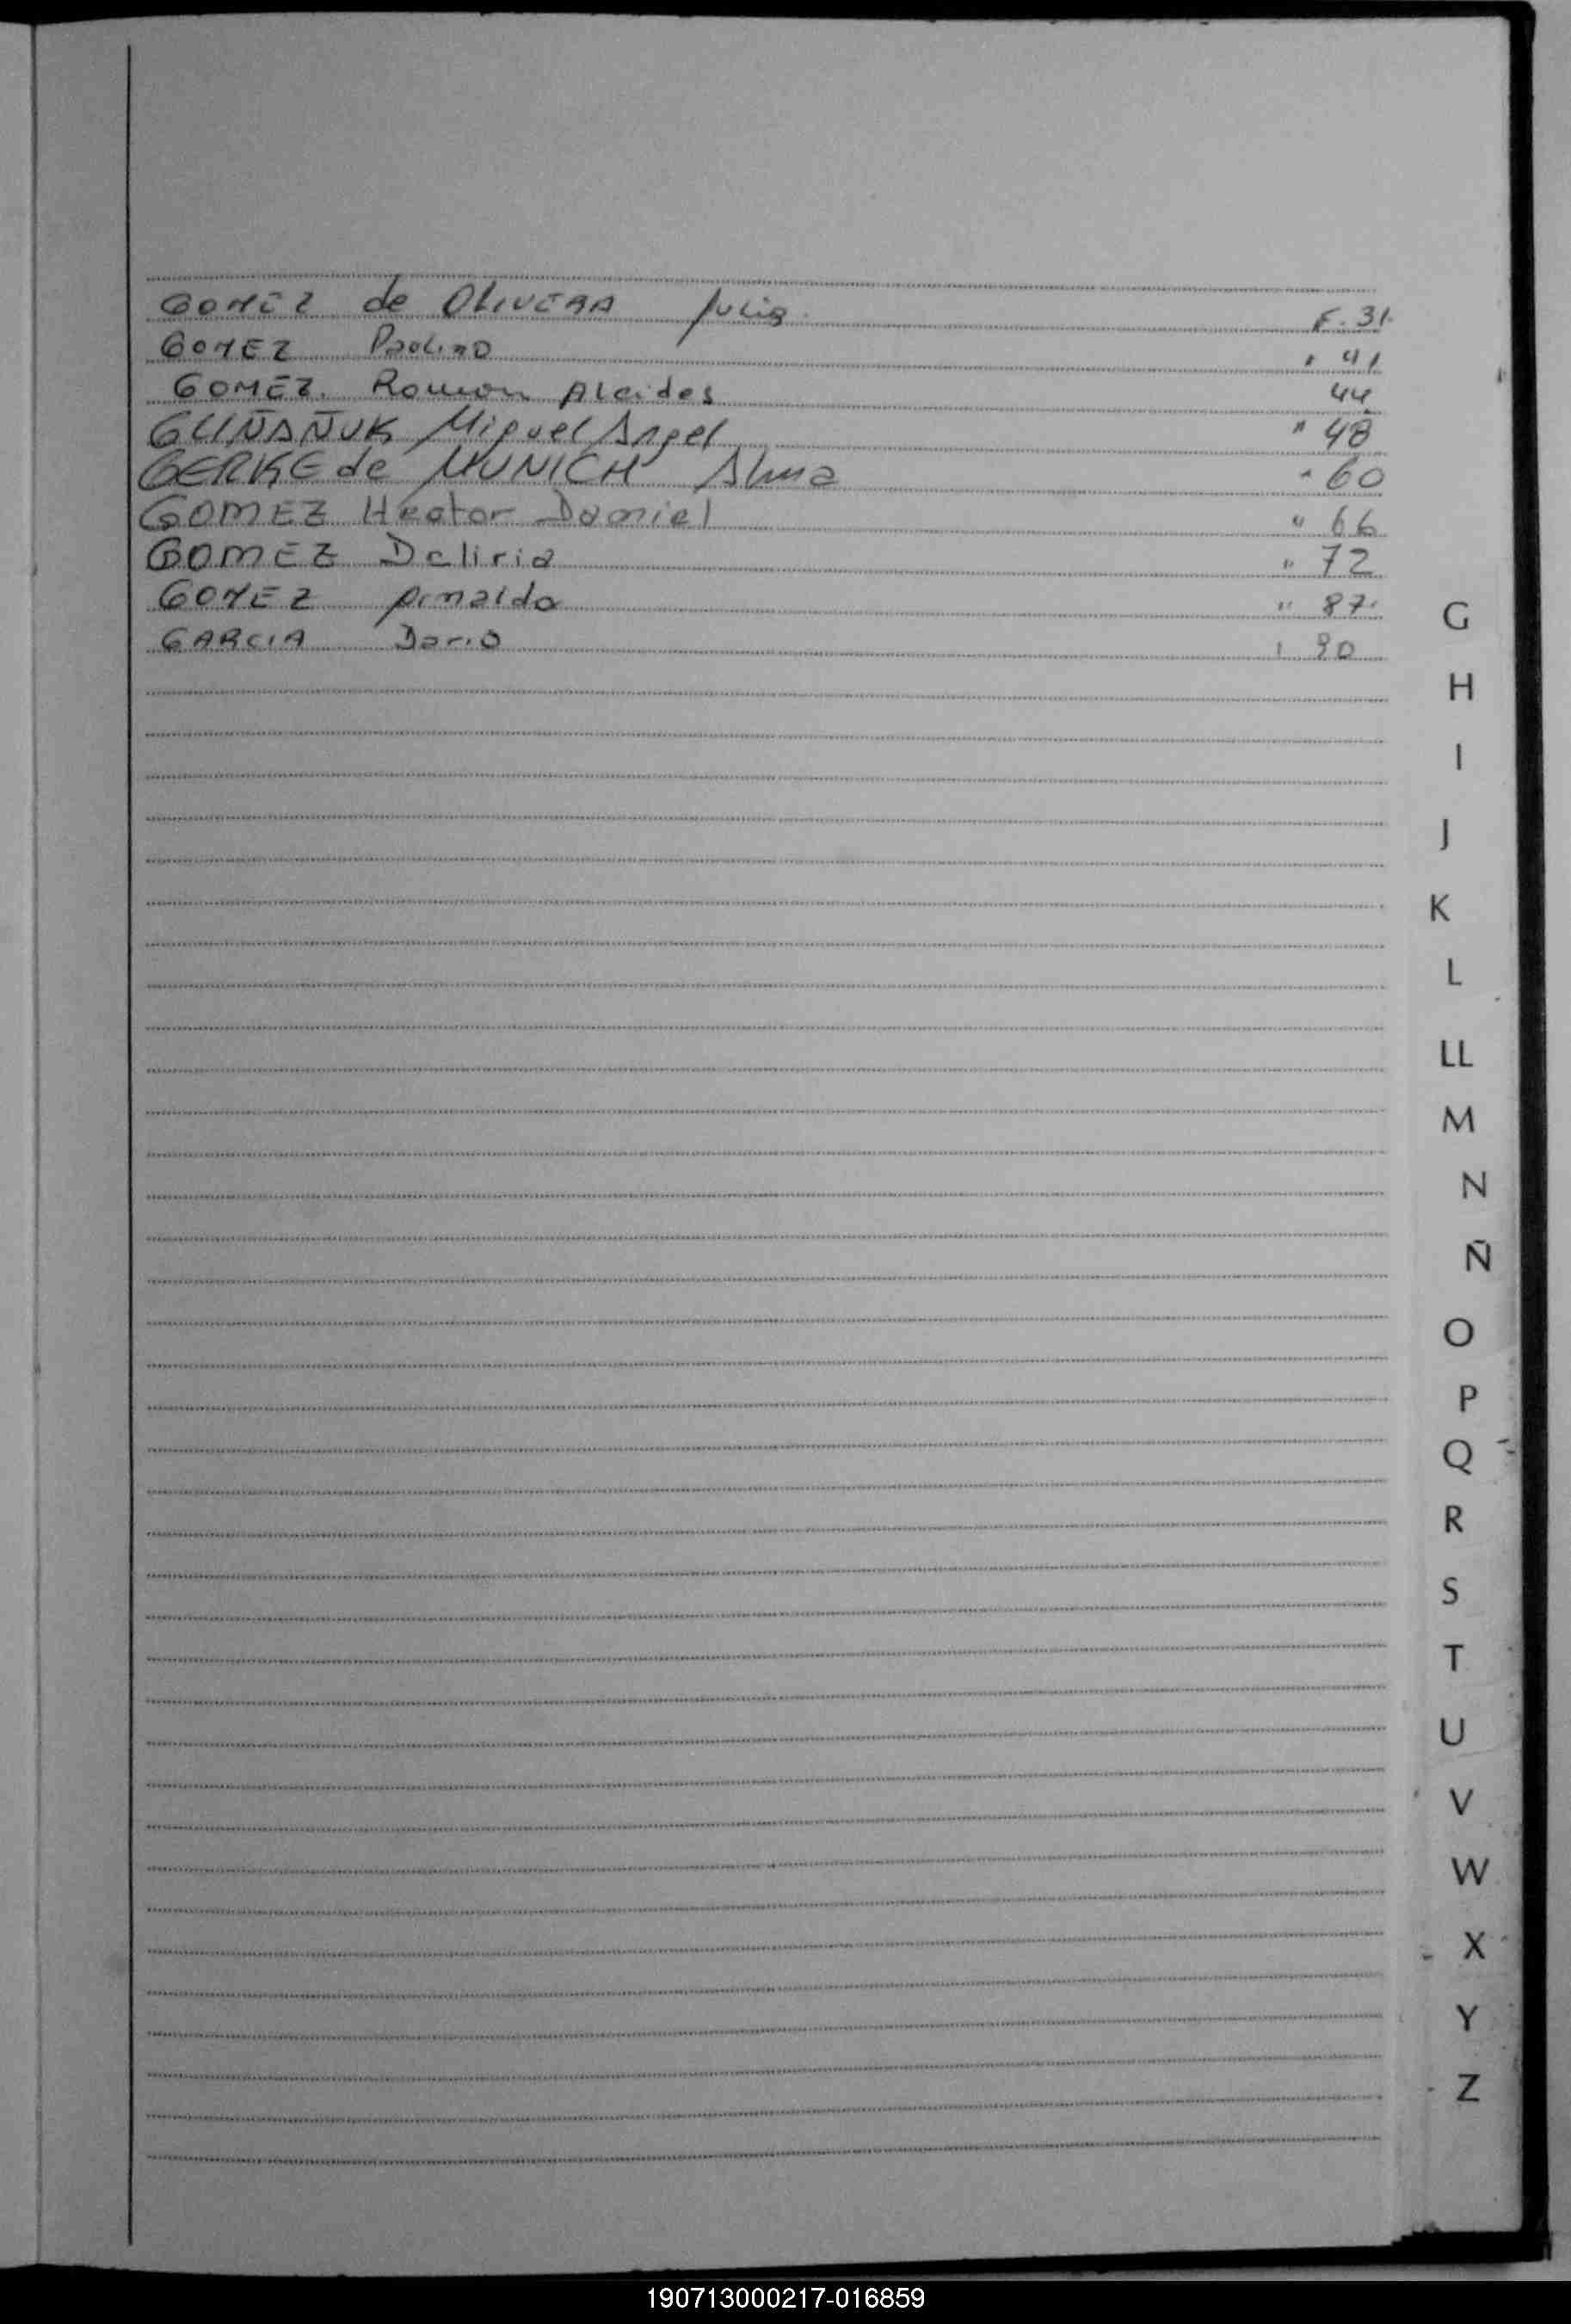 GOMEZ de OLIVERA Julia F. 31.
GOMEZ Paolino " 41
GOMEZ. Ramon Alcides 44
GLIÑAÑUK Miguel Angel " 48
GERKE de MUNICH Alma " 60
GOMEZ Hector Damiel " 66
GOMEZ Deliria " 72
GOMEZ Arnaldo " 87.
GARCIA Dario " 90
G
H
I
J
K
L
LL
M
N
Ñ
O
P
Q
R
S
T
U
V
W
X
Y
Z
190713000217-016859